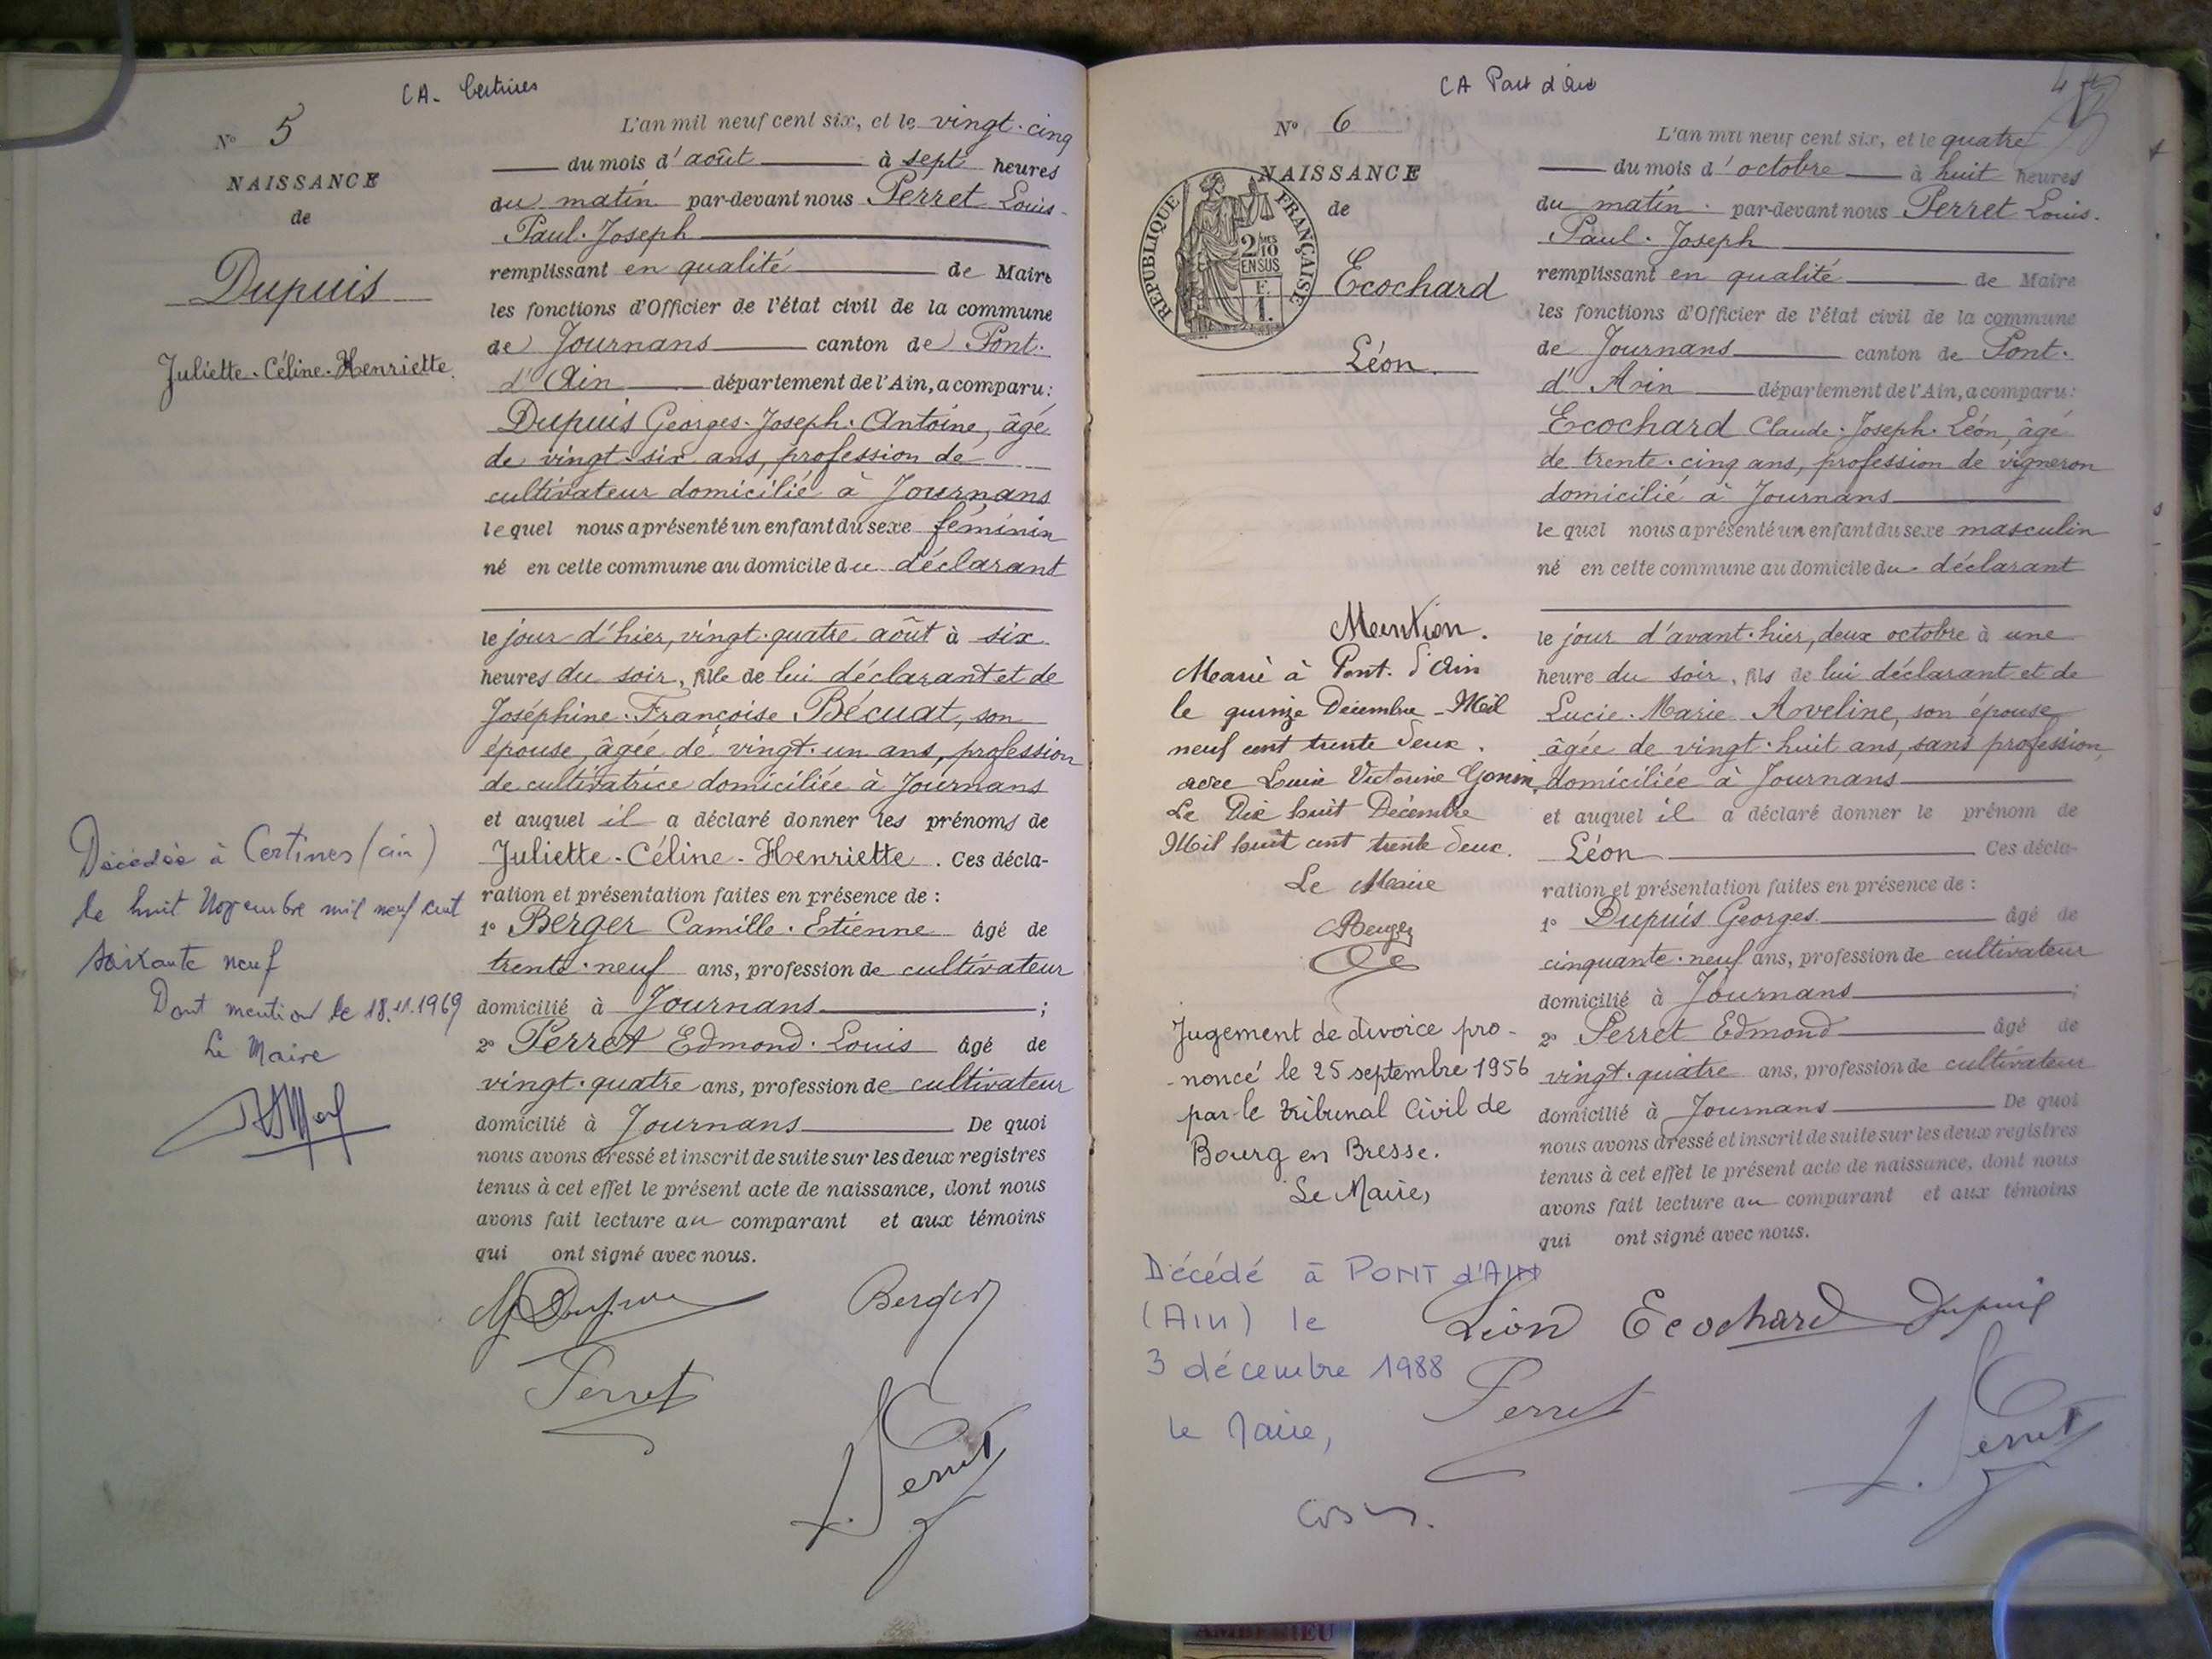 CA. Certines
Nº 5
NAISSANCE
de
Dupuis
Juliette-Céline-Henriette.
L'an mil neuf cent six, et le vingt-cinq
du mois d'août à sept heures
du matin par-devant nous Perret Louis-
Paul-Joseph
remplissant en qualité de Maire
les fonctions d'Officier de l'état civil de la commune
de Journans canton de Pont-
d'Ain département de l'Ain, a comparu:
Dupuis Georges-Joseph-Antoine, âgé
de vingt-six ans, profession de
cultivateur domicilié à Journans
lequel nous a présenté un enfant du sexe féminin
né en cette commune au domicile du déclarant
le jour d'hier, vingt-quatre août à six
heures du soir, fille de lui déclarant et de
Joséphine-Françoise Bécuat, son
épouse, âgée de vingt-un ans, profession
de cultivatrice domiciliée à Journans
et auquel il a déclaré donner les prénoms de
Juliette-Céline-Henriette. Ces décla-
ration et présentation faites en présence de :
1º Berger Camille-Etienne âgé de
trente-neuf ans, profession de cultivateur
domicilié à Journans ;
2º Perret Edmond-Louis âgé de
vingt-quatre ans, profession de cultivateur
domicilié à Journans De quoi
nous avons dressé et inscrit de suite sur les deux registres
tenus à cet effet le présent acte de naissance, dont nous
avons fait lecture au comparant et aux témoins
qui ont signé avec nous.
Berger
Perret
L. Perret
Décédée à Certines (ain)
le huit Novembre mil neuf cent
soixante neuf
Dont mention le 18.11.1969
Le Maire
CA Pont d'Ain
Nº 6
NAISSANCE
de
Ecochard
Léon.
RÉPUBLIQUE FRANÇAISE
2/10
EN SUS
F.
1.
L'an mil neuf cent six, et le quatre
du mois d'octobre à huit heures
du matin par-devant nous Perret Louis-
Paul-Joseph
remplissant en qualité de Maire
les fonctions d'Officier de l'état civil de la commune
de Journans canton de Pont-
d'Ain département de l'Ain, a comparu:
Ecochard Claude-Joseph-Léon, âgé
de trente-cinq ans, profession de vigneron
domicilié à Journans
lequel nous a présenté un enfant du sexe masculin
né en cette commune au domicile du déclarant
le jour d'avant-hier, deux octobre à une
heure du soir, fils de lui déclarant et de
Lucie-Marie Aveline, son épouse
âgée de vingt-huit ans, sans profession,
domiciliée à Journans
et auquel il a déclaré donner le prénom de
Léon Ces décla-
ration et présentation faites en présence de :
1º Dupuis Georges âgé de
cinquante-neuf ans, profession de cultivateur
domicilié à Journans ;
2º Perret Edmond âgé de
vingt-quatre ans, profession de cultivateur
domicilié à Journans De quoi
nous avons dressé et inscrit de suite sur les deux registres
tenus à cet effet le présent acte de naissance, dont nous
avons fait lecture au comparant et aux témoins
qui ont signé avec nous.
Léon Ecochard Dupuis
Perret
L. Perret
Mention.
Marié à Pont-d'Ain
le quinze Décembre Mil
neuf cent trente deux.
avec Louise Victorine Gonin,
Le Dix huit Décembre
Mil huit cent trente deux.
Le Maire
Jugement de divorce pro-
-noncé le 25 septembre 1956
par le tribunal Civil de
Bourg en Bresse.
Le Maire,
Décédé à PONT d'AIN
(AIN) le
3 décembre 1988
le Maire,
AMBERIEU